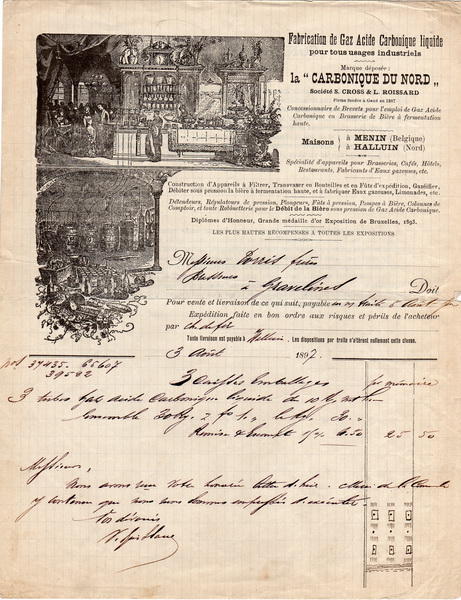 Fabrication de Gaz Acide Carbonique liquide
pour tous usages industriels
Marque déposée:
la "CARBONIQUE DU NORD"
Société S. CROSS & L. ROISSARD
Firme fondée à Gand en 1887
Concessionnaire de Brevets pour l'emploi de Gaz Acide
Carbonique en Brasserie de Bière à fermentation
haute.
Maisons
à MENIN (Belgique)
à HALLUIN (Nord)
Spécialité d'appareils pour Brasseries, Cafés, Hôtels,
Restaurants, Fabricants d'Eaux gazeuses, etc.
Construction d'Appareils à Filtrer, Transvaser en Bouteilles et en Fûts d'expédition, Gazéifier,
Débiter sous pression la bière à fermentation haute, et à fabriquer Eaux gazeuses, Limonades, etc.
Détendeurs, Régulateurs de pression, Plongeurs, Fûts à pression, Pompes à Bière, Colonnes de
Comptoir, et toute Robinetterie pour le Débit de la Bière sous pression de Gaz Acide Carbonique.
Diplômes d'Honneur, Grande médaille d'or Exposition de Bruxelles, 1893.
LES PLUS HAUTES RÉCOMPENSES A TOUTES LES EXPOSITIONS
Messieurs Torris frères
Brasseurs
à Gravelines Doit
Pour vente et livraison de ce qui suit, payable
Expédition faite en bon ordre aux risques et périls de l'acheteur
par ch de fer
Toute livraison est payable à Halluin. Les dispositions par traite n'altèrent nullement cette clause.
3 Août 1897.
nos 39435. 65607
39592
3 Caisses Emballages pr mémoire
3 tubes gaz acide Carbonique liquide de 10 K
Ensemble 30 Kg. 2 f le Kg. 30 "
Remise & Escompte 4.50 25 50
Messieurs,
Nous avons votre honorée lettre d'hier. Merci de la
y contenue que nous nous sommes empressés d'exécuter.